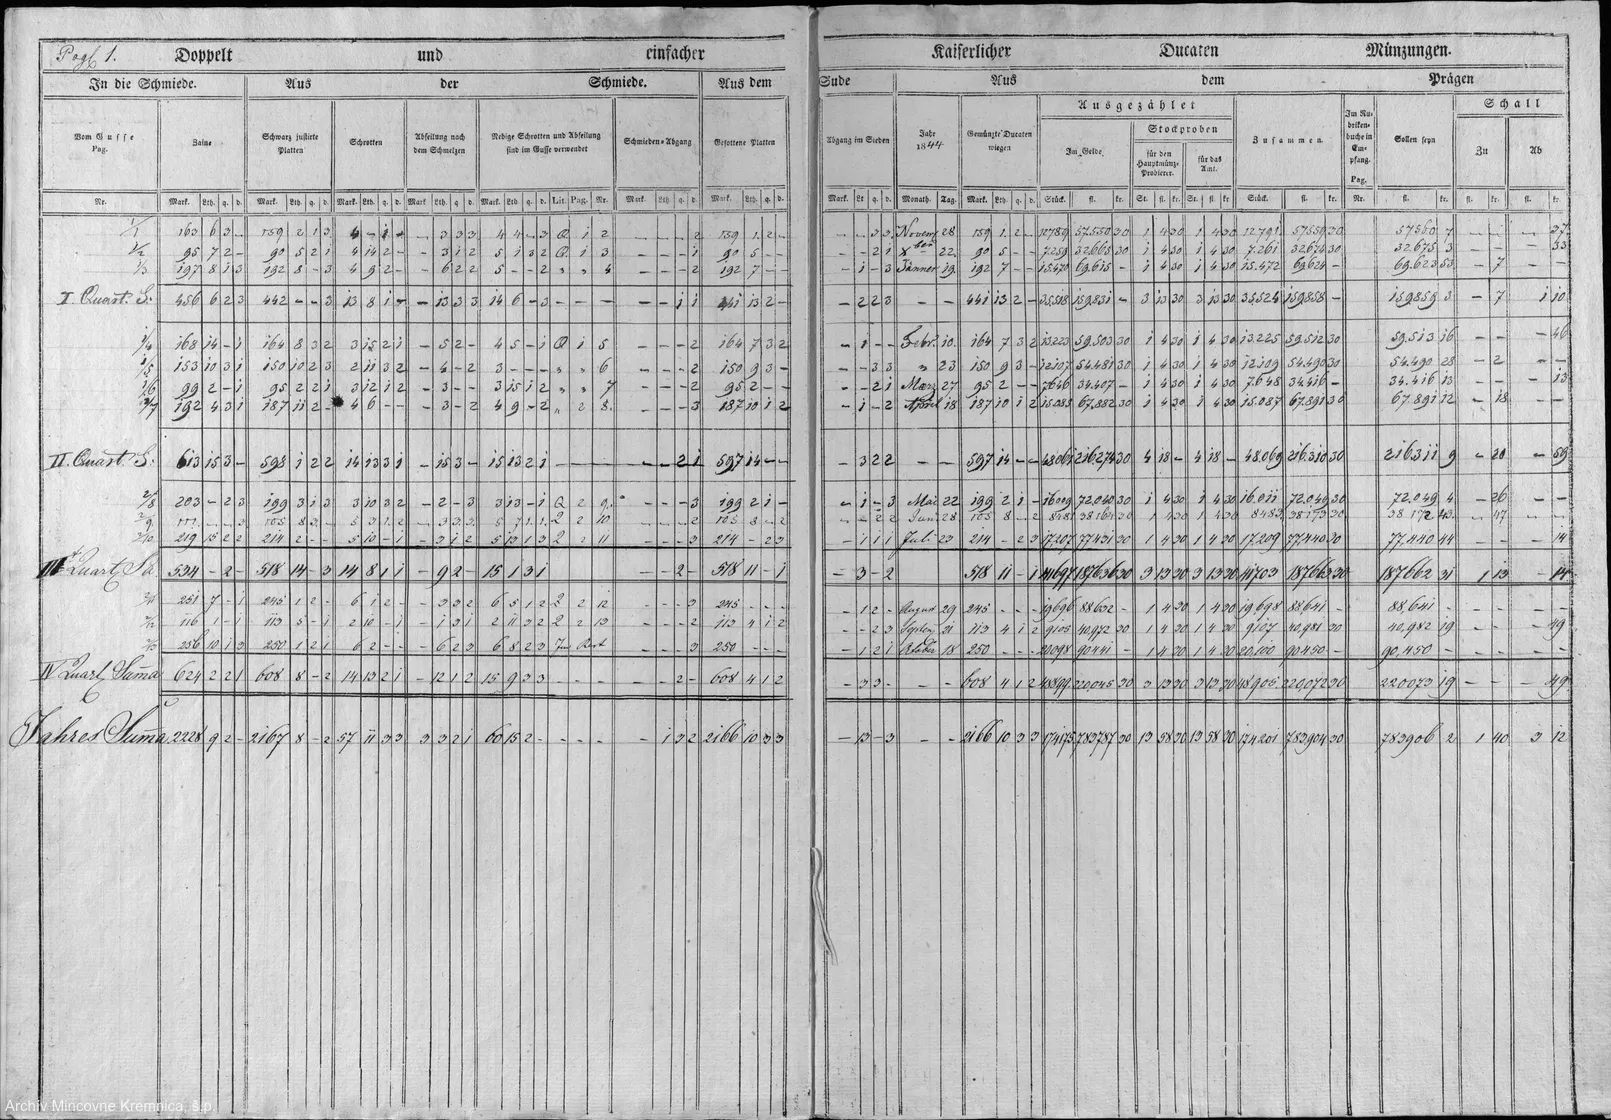 Pag 1. Doppelt und einfacher Kaiserlicher Ducaten Münzungen.
In die Schmiede. Aus der Schmiede. Aus dem Sude Aus dem Prägen
Vom Gusse Pag. Zaine Schwarz justirte Platten Schrotten Abfeilung nach dem Schmelzen Nebige Schrotten und Abfeilung sind im Gusse verwendet Schmieden-Abgang Gesottene Platten Abgang im Sieden Jahr 1844 Gemünzte Ducaten wiegen Ausgezählet Im Gelde Stockproben für den Hauptmünz-Probierer. für das Amt. Zusammen Im Rubrikenbuche in Empfang. Pag. Sollen seyn Schall Zu Ab
Nr. Mark. Lth. q. d. Mark. Lth. q. d. Mark. Lth. q. d. Mark Lth. q. d. Mark. Lth q. d. Lit. Pag. Nr. Mark. Lth. q. d. Mark. Lth. q. d. Mark. Lt q. d. Monath. Tag. Mark. Lth. q. d. Stück. fl. kr. St. fl. kr. St. fl. kr. Stück. fl. kr. Nr. fl. kr. fl. kr. fl. kr.
1/1 163 6 3 - 159 2 1 3 4 - 1 - - 3 3 3 4 4 - 3 Q 1 2 - - - 2 159 1 2 - - - 3 3 Novem 28 159 1 2 - 12789 57.550 30 1 4 30 1 4 30 12.791 57559 30 57560 7 - - - 37
1/2 95 7 2 - 90 5 2 1 4 14 2 - - 3 1 2 5 1 3 2 Q 1 3 - - - 1 90 5 - - - - 2 1 Xber 22 90 5 - - 7259 32.665 30 1 4 30 1 4 30 7.261 32674 30 32675 3 - - - 33
1/3 197 8 1 3 192 8 - 3 4 9 2 - - 6 2 2 5 - - 2 " " 4 - - - 2 192 7 - - - 1 - 3 Jänner 19 192 7 - - 15.470 69.615 - 1 4 30 1 4 30 15.472 69.624 - 69.623 53 - 7 - -
I Quart. S: 456 6 2 3 442 - - 3 13 8 1 - - 13 3 3 14 6 - 3 - - - - - 1 1 441 13 2 - - 2 2 3 - - 441 13 2 - 35518 159.831 - 3 13 30 3 13 30 35.524 159858 - 159859 3 - 7 1 10
1/4 168 14 - 1 164 8 3 2 3 15 2 1 - 5 2 - 4 5 - 1 Q 1 5 - - - 2 164 7 3 2 - 1 - - Febr. 10 164 7 3 2 13223 59.503 30 1 4 30 1 4 30 13.225 59.512 30 59.513 16 - - - 46
1/5 153 10 3 1 150 10 2 3 2 11 3 2 - 4 - 2 3 - - - " " 6 - - - 2 150 9 3 - - - 3 3 " 23 150 9 3 - 12107 54.481 30 1 4 30 1 4 30 12109 54.490 30 54.490 28 - 2 - -
1/6 99 2 - 1 95 2 2 1 3 12 1 2 - 3 - - 3 15 1 2 " " 7 - - - 2 95 2 - - - - 2 1 März 27 95 2 - - 7646 34.407 - 1 4 30 1 4 30 7.648 34.416 - 34.416 13 - - - 13
2/7 192 4 3 1 187 11 2 - 4 6 - - - 3 - 2 4 9 - 2 " 2 8. - - - 3 187 10 1 2 - 1 - 2 April 18 187 10 1 2 15.085 67.882 30 1 4 30 1 4 30 15.087 67.891 30 67.891 12 - 18 - -
II. Quart. S: 613 15 3 - 598 1 2 2 14 13 3 1 - 15 3 - 15 13 2 1 - - - - 2 1 597 14 - - - 3 2 2 - - 597 14 - - 48061 216.274 30 4 18 - 4 18 - 48.069 216.310 30 216311 9 - 20 - 59
2/8 203 - 2 3 199 3 1 3 3 10 3 2 - 2 - 3 3 13 - 1 Q 2 9. - - - 3 199 2 1 - - 1 - 3 Mai 22 199 2 1 - 16009 72.040 30 1 4 30 1 4 30 16.011 72.049 30 72.049 4 - 26 - -
2/9 - - 3 105 8 3 - 5 3 1 2 - 3 3 3 5 7 1 1 2 2 10 - - - 2 105 8 - 2 - - 2 2 Juni 28 105 8 - 2 8481 38164 30 1 4 30 1 4 30 8483 38173 30 38172 43 - 47 - -
2/10 219 15 2 2 214 2 - - 5 10 - 1 - 3 1 2 5 13 1 3 2 2 11 - - - 3 214 - 2 3 - 1 1 1 Juli 23 214 - 2 3 17.207 77.431 30 1 4 30 1 4 30 17.209 77.440 30 77.440 44 - - - 14
III Quart Sa 534 - 2 - 518 14 - 3 14 8 1 1 - 9 2 - 15 1 3 1 - - 2 - 518 11 - 1 - 3 - 2 518 11 - 1 41697 187636 30 3 13 30 3 13 30 41703 187663 30 187662 31 1 13 - 14
2/11 251 7 - 1 245 1 2 - 6 1 2 - - 3 3 2 6 5 1 2 2 2 12 - - - 3 245 - - - - 1 2 - August 29 245 - - - 19696 88632 - 1 4 30 1 4 30 19698 88641 - 88,641 - - - - -
2/12 116 1 - 1 113 5 - 1 2 10 - 1 - 1 3 1 2 11 3 2 2 2 13 - - - 2 113 4 1 2 - - 2 3 Septem 21 113 4 1 2 9105 40,972 30 1 4 30 1 4 30 9107 40,981 30 40,982 19 - - - 49
2/13 256 10 1 3 250 1 2 1 6 2 - - - 6 2 3 6 8 2 3 Im Rest - - - 3 250 - - - - 1 2 1 Oktober 18 250 - - - 20,098 90441 - 1 4 30 1 4 30 20,100 90450 - 90,450 - - - - -
IV Quart Suma 624 2 2 1 608 8 - 2 14 13 2 1 - 12 1 2 15 9 3 3 - - - - - 2 - 608 4 1 2 - 3 3 - - - 608 4 1 2 48899 220,045 30 3 13 30 3 13 30 48905 220,072 30 220073 19 - - - 49
Jahres Suma 2228 9 2 - 2167 8 - 2 57 11 3 3 3 3 2 1 60 15 2 - - - - - 1 3 2 2166 10 3 3 - 13 - 3 - - 2166 10 3 3 174175 783787 30 13 58 30 13 58 30 174201 783,904 30 783906 2 1 40 3 12
Archív Mincovne Kremnica, š.p.